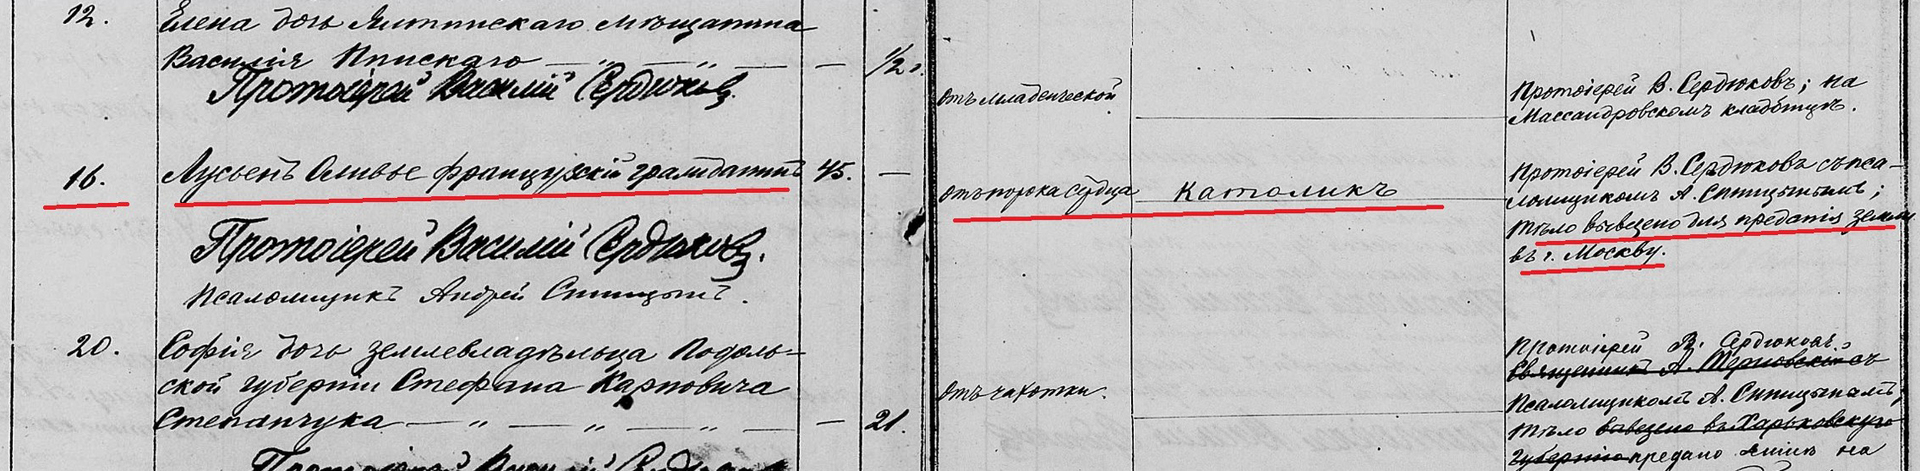 12. Елена дочь Ялтинскаго мѣщанина
Василія Ппискаго — „ — „ — — 1/2 г.
Протоіерей Василій Сердюковъ.
отъ младенческой
Протоіерей В. Сердюковъ; на
Массандровскомъ кладбищѣ.
16. Лусьенъ Оливье французскій гражданинъ 45. —
отъ порока сердца
католикъ
Протоіерей Василій Сердюковъ.
Псаломщикъ Андрей Спицынъ.
Протоіерей В. Сердюковъ съ пса-
ломщикомъ А. Спицынымъ;
тѣло вывезено для преданія земли
въ г. Москву.
20. Софія дочь землевладѣльца Подоль-
ской губерніи Стефана Карповича
Степанчука — „ — „ — „ — — 21.
отъ чахотки.
Протоіерей Василій
Протоіерей В. Сердюковъ
Священникъ А. Терновскій съ
Псаломщикомъ А. Спицынымъ;
тѣло вывезено въ Харьковскую
губернію предано землѣ на